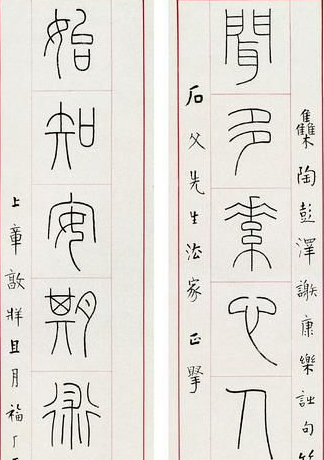 雧陶彭澤謝康樂詩句
聞多素心人
石父先生法家 正
始知安期術
上章敦牂且月福厂